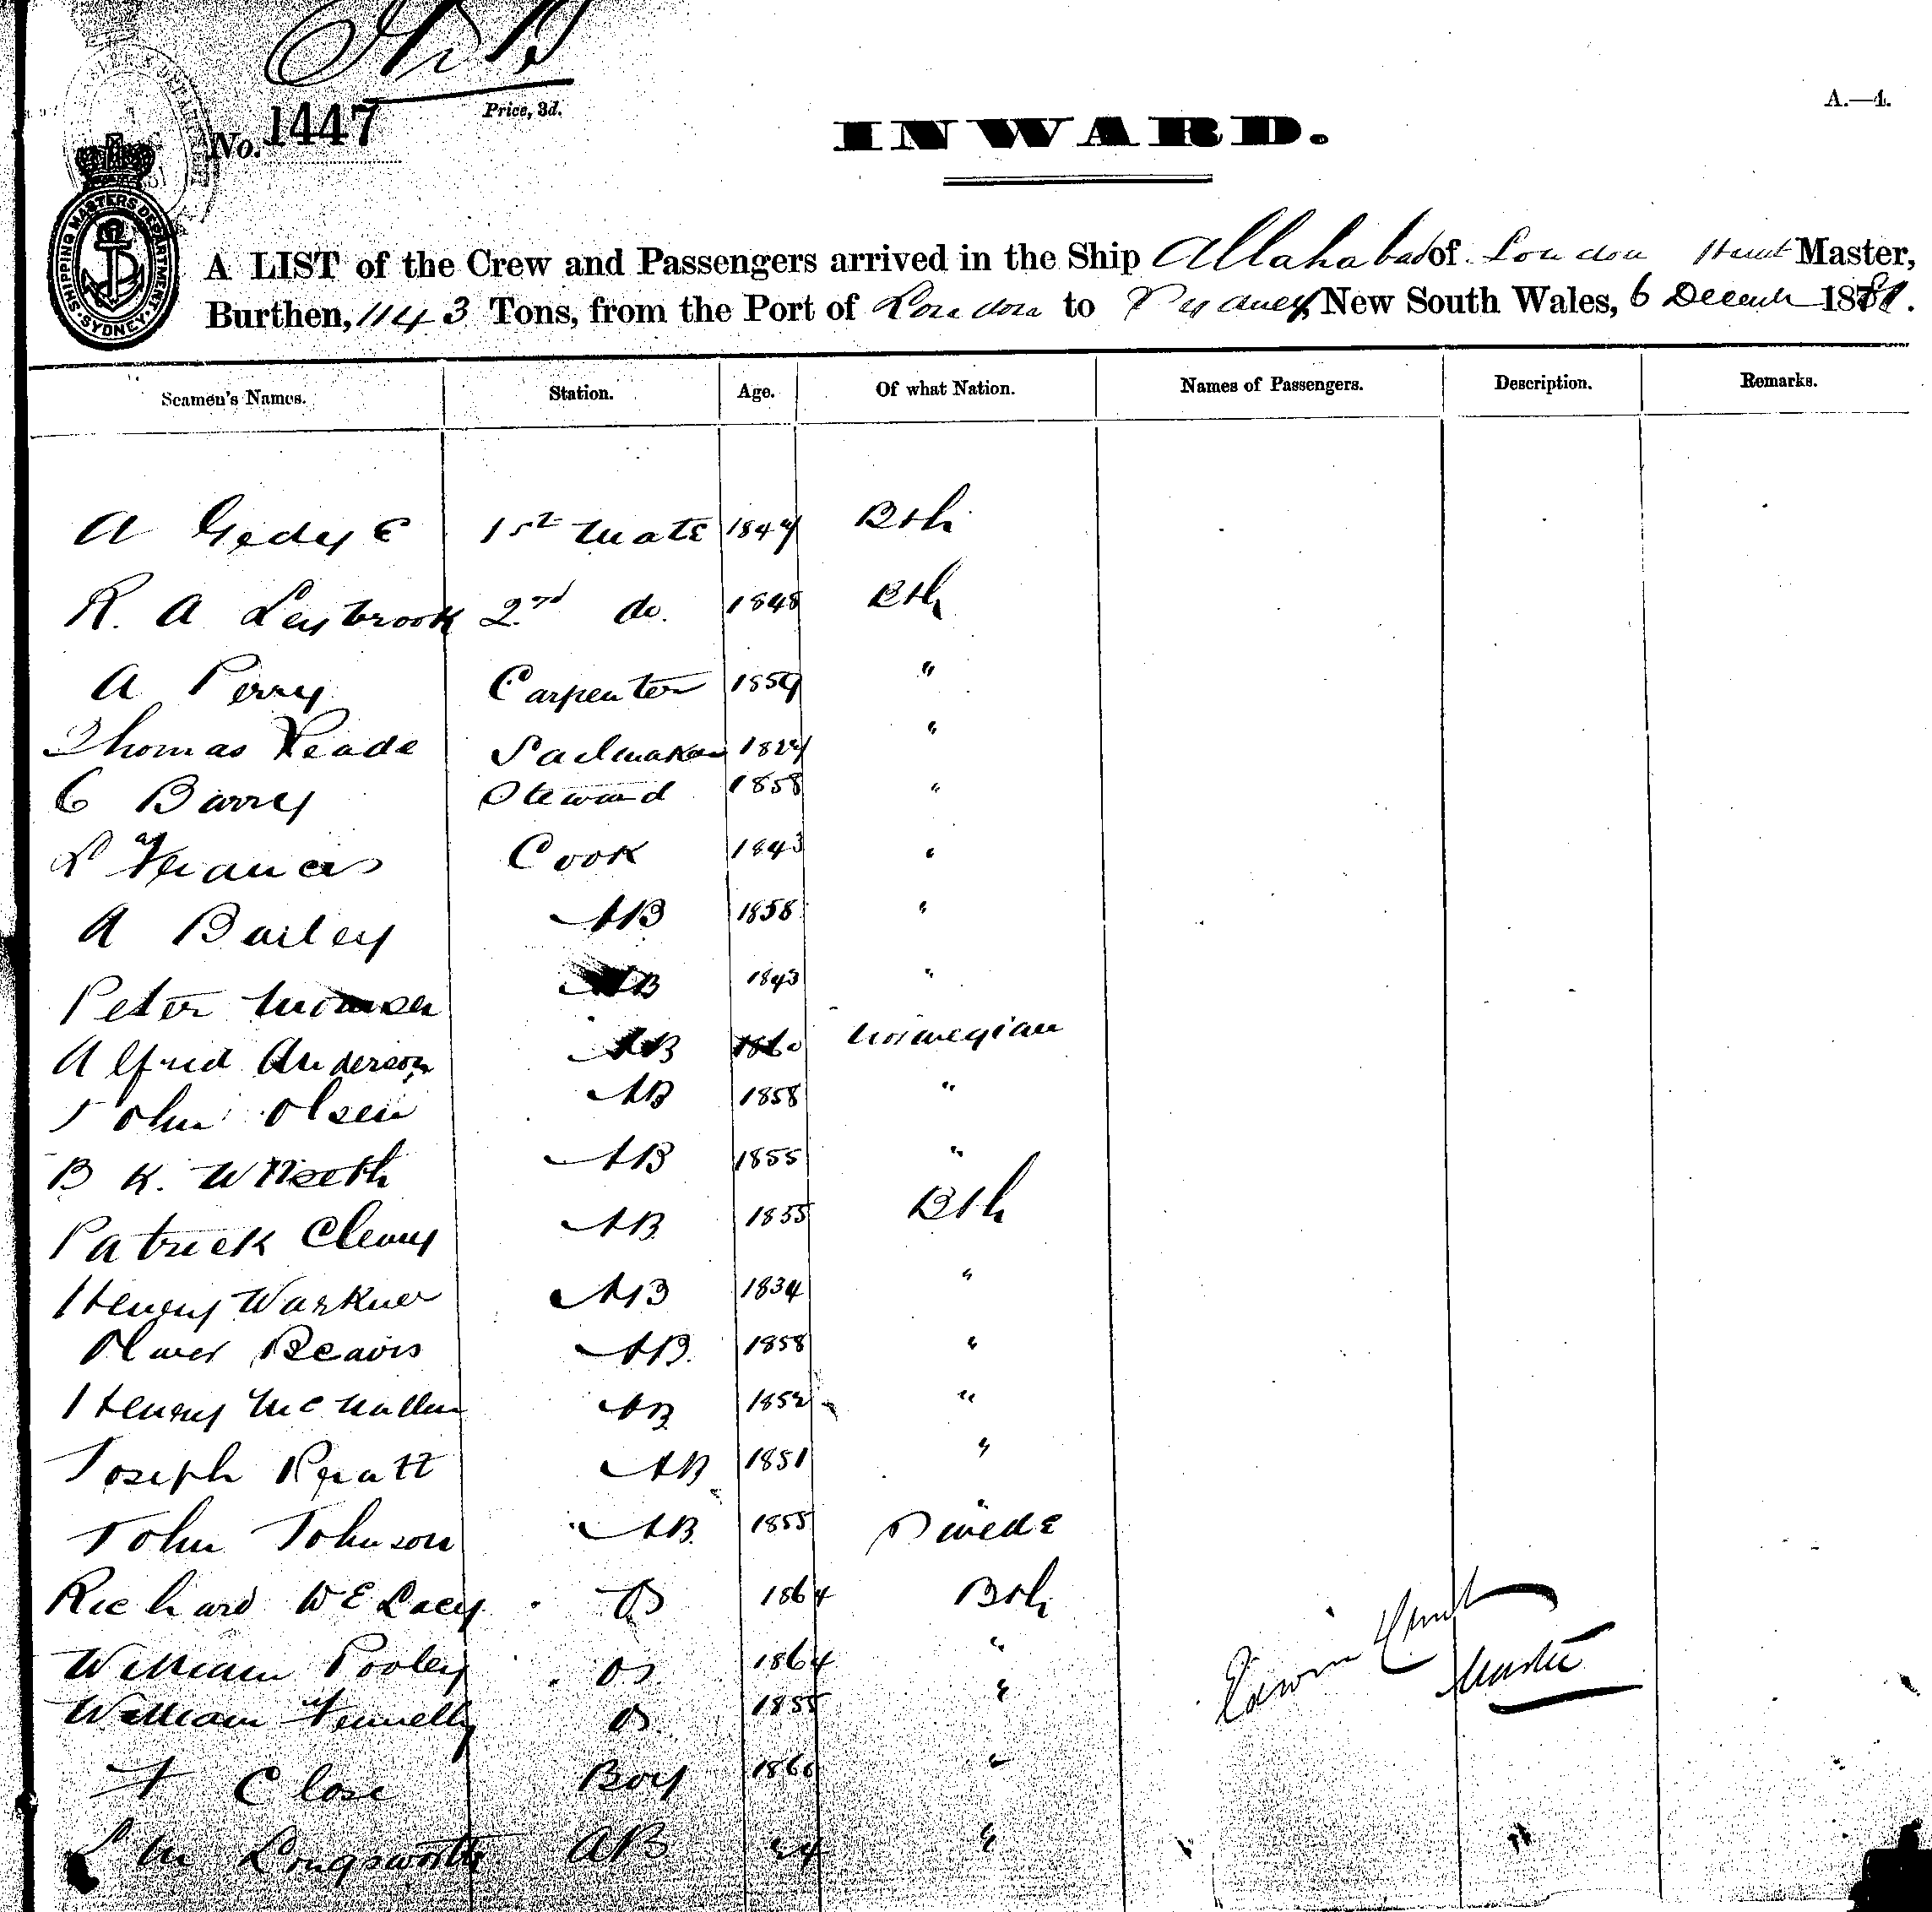 No. 1447
Price, 3d.
A.—4.
INWARD.
SHIPPING MASTERS DEPARTMENT SYDNEY
A LIST of the Crew and Passengers arrived in the Ship Allahabad of London Hunt Master,
Burthen, 1143 Tons, from the Port of London to Sydney, New South Wales, 6 Decemb 1881.
Seamen's Names. Station. Age. Of what Nation. Names of Passengers. Description. Remarks.
A Gedye 1st Mate 1844 Bsh
R. A Leybrook 2nd do. 1848 Bsh
A Perry Carpenter 1859 "
Thomas Reade Sailmaker 1824 "
C Barry Steward 1858 "
Francis Cook 1843 "
A Bailey AB 1858 "
Peter AB 1843 "
Alfrid Anderson AB 1860 Norwegian
John Olsen AB 1858 "
B K. AB 1855 "
Patrick Cleary AB 1855 Bsh
Henery AB 1834 "
Oliver Beavis AB. 1858 "
Henery McMullen AB 1852 "
Joseph Pratt AB 1851 "
John Johnson AB. 1855 Swede
Richard WE Lacey OS 1864 Bsh
William Pooley OS 1864 "
William Fennelly OS. 1855 "
F Close Boy 1866 "
M Longsworth AB 24 "
Edwin Hunt
Master